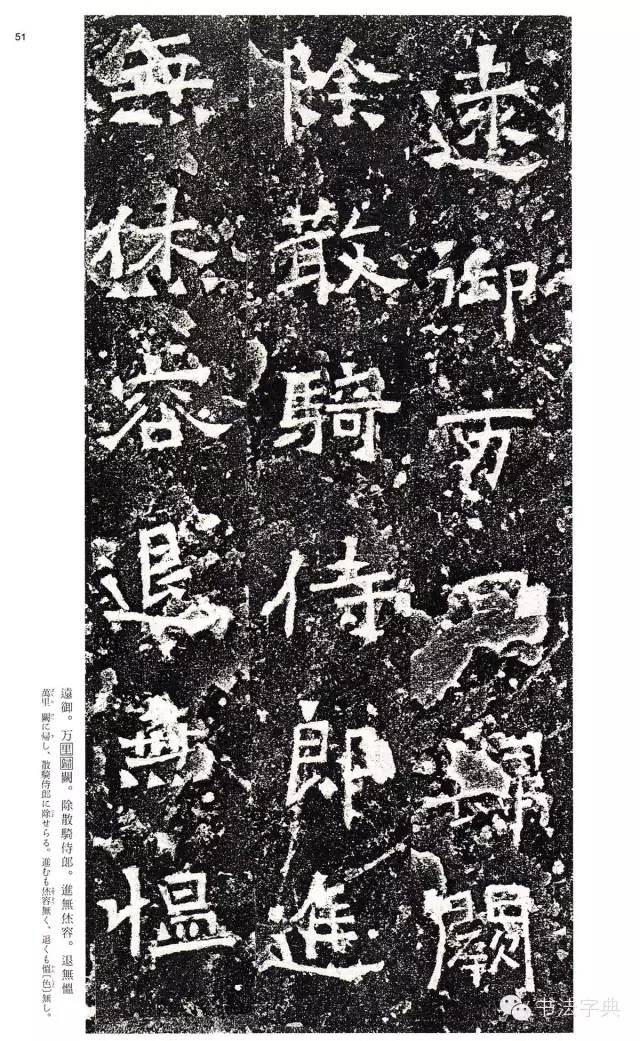 遠御万里歸闕
除散騎侍郎進
無休容退無慍
51
遠御。万里歸闕。除散騎侍郎。進無休容。退無慍
萬里 闕に帰し、散騎侍郎に除せらる。進むも休容無く、退くも慍〔色〕無し。
书法字典